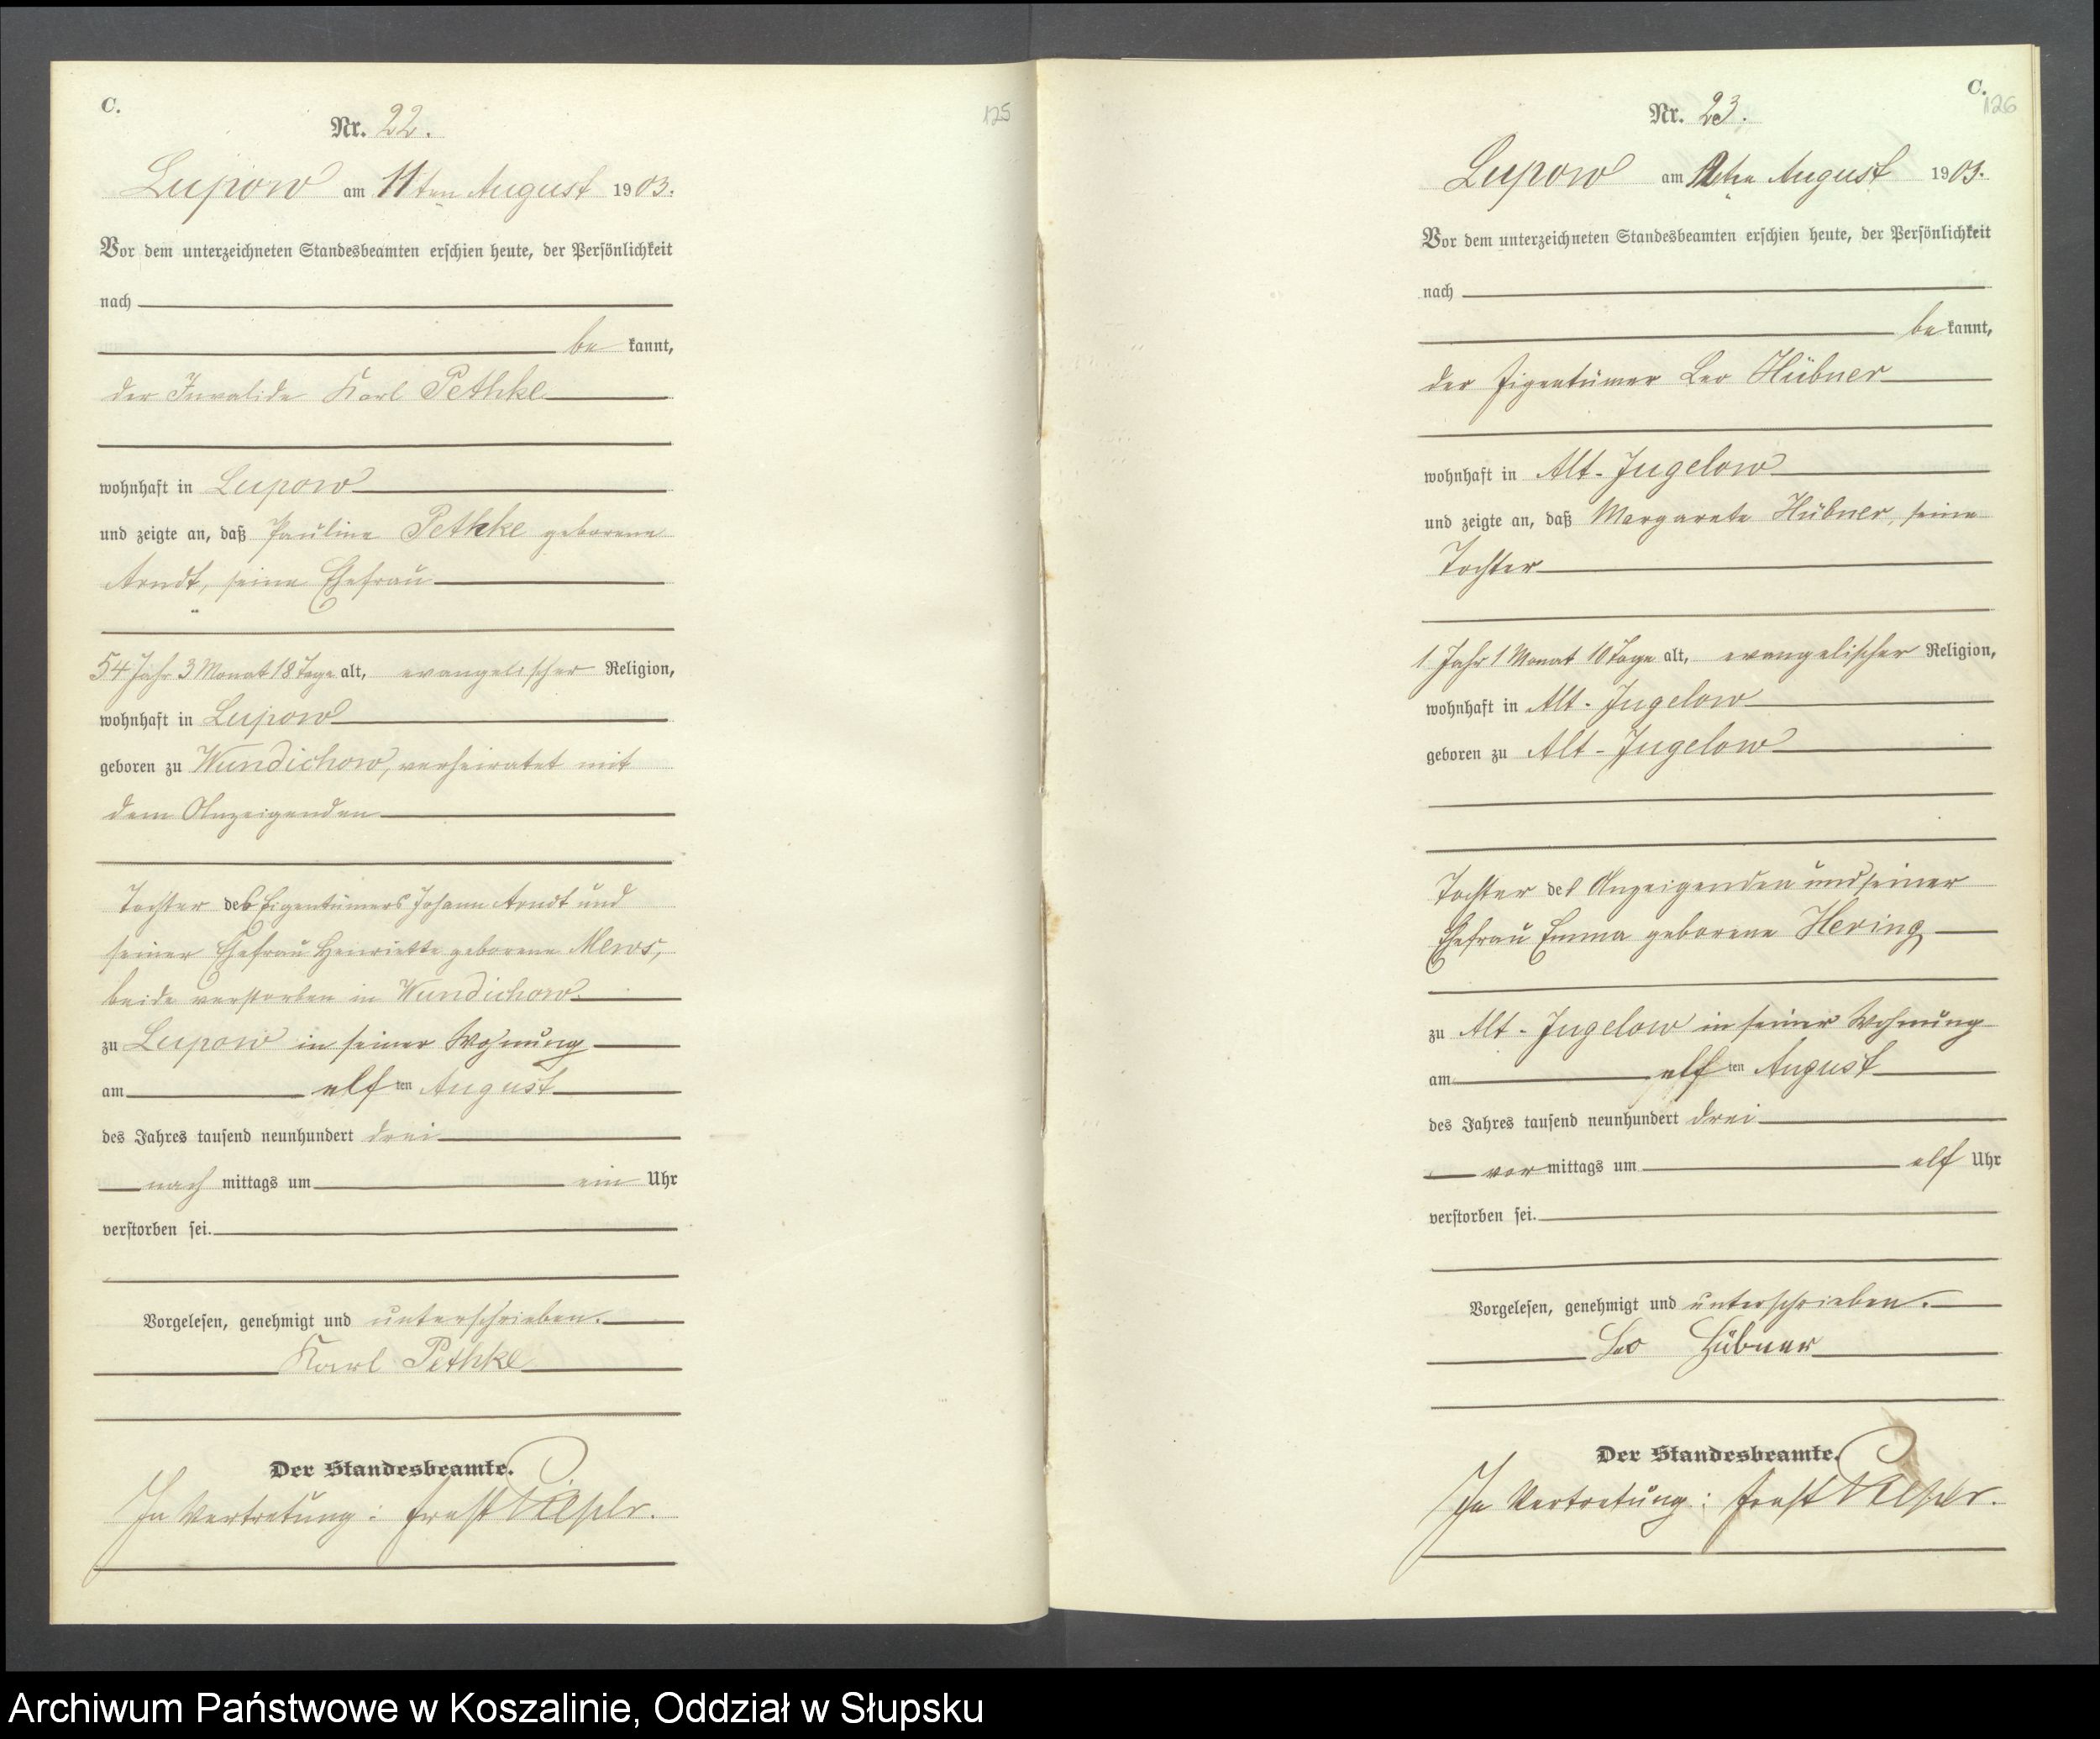 C.
125
Nr. 22.
Lupow am 11ten August 1903.
Vor dem unterzeichneten Standesbeamten erschien heute, der Persönlichkeit
nach
be kannt,
der Invalide Karl Pethke
wohnhaft in Lupow
und zeigte an, daß Pauline Pethke geborene
Arndt, seine Ehefrau
54 Jahr 3 Monat 18 Tage alt, evangelischer Religion,
wohnhaft in Lupow
geboren zu Wundichow, verheiratet mit
dem Anzeigenden
Tochter des Eigentümers Johann Arndt und
seiner Ehefrau Henriette geborene Mews,
beide verstorben in Wundichow.
zu Lupow in seiner Wohnung
am elf ten August
des Jahres tausend neunhundert drei
nach mittags um ein Uhr
verstorben sei.
Vorgelesen, genehmigt und unterschrieben.
Karl Pethke
Der Standesbeamte.
In Vertretung: Ernst
C.
126
Nr. 23.
Lupow am 12ten August 1903.
Vor dem unterzeichneten Standesbeamten erschien heute, der Persönlichkeit
nach
be kannt,
der Eigentümer Leo Hübner
wohnhaft in Alt-Jugelow
und zeigte an, daß Margarete Hübner, seine
Tochter
1 Jahr 1 Monat 10 Tage alt, evangelischer Religion,
wohnhaft in Alt-Jugelow
geboren zu Alt-Jugelow
Tochter des Anzeigenden und seiner
Ehefrau Emma geborene Hering
zu Alt-Jugelow in seiner Wohnung
am elf ten August
des Jahres tausend neunhundert drei
vor mittags um elf Uhr
verstorben sei.
Vorgelesen, genehmigt und unterschrieben.
Leo Hübner
Der Standesbeamte.
In Vertretung: Ernst
Archiwum Państwowe w Koszalinie, Oddział w Słupsku